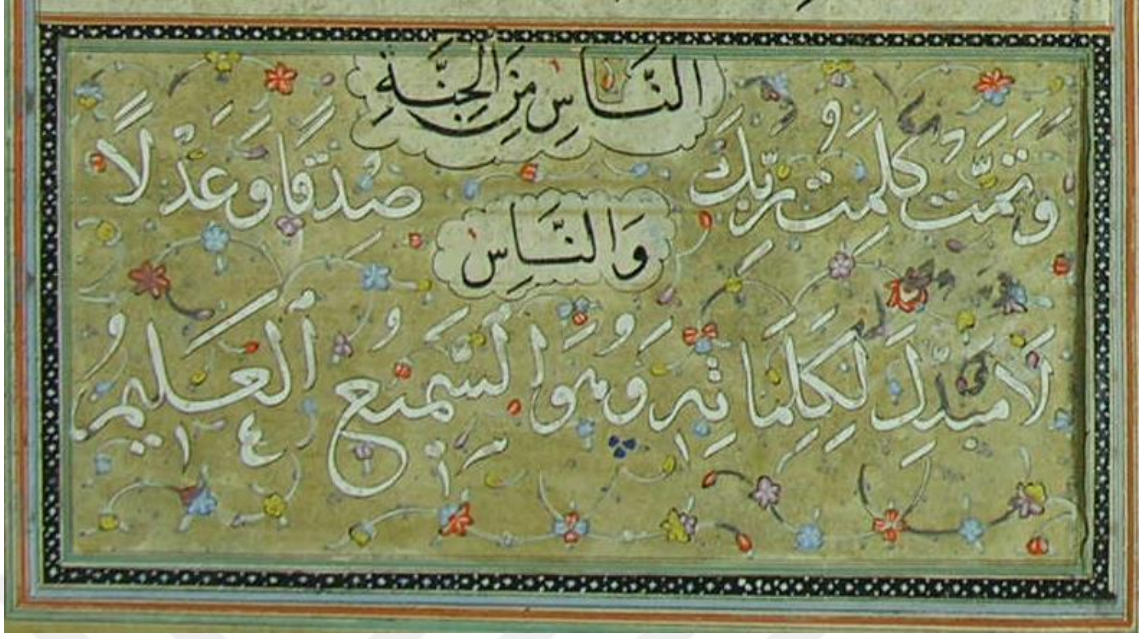 النَّاسِ مِنَ الْجِنَّةِ
وَتَمَّتْ كَلِمَتُ رَبِّكَ صِدْقًا وَعَدْلًا
وَالنَّاسِ
لَا مُبَدِّلَ لِكَلِمَاتِهِ وَهُوَ السَّمِيعُ الْعَلِيمُ